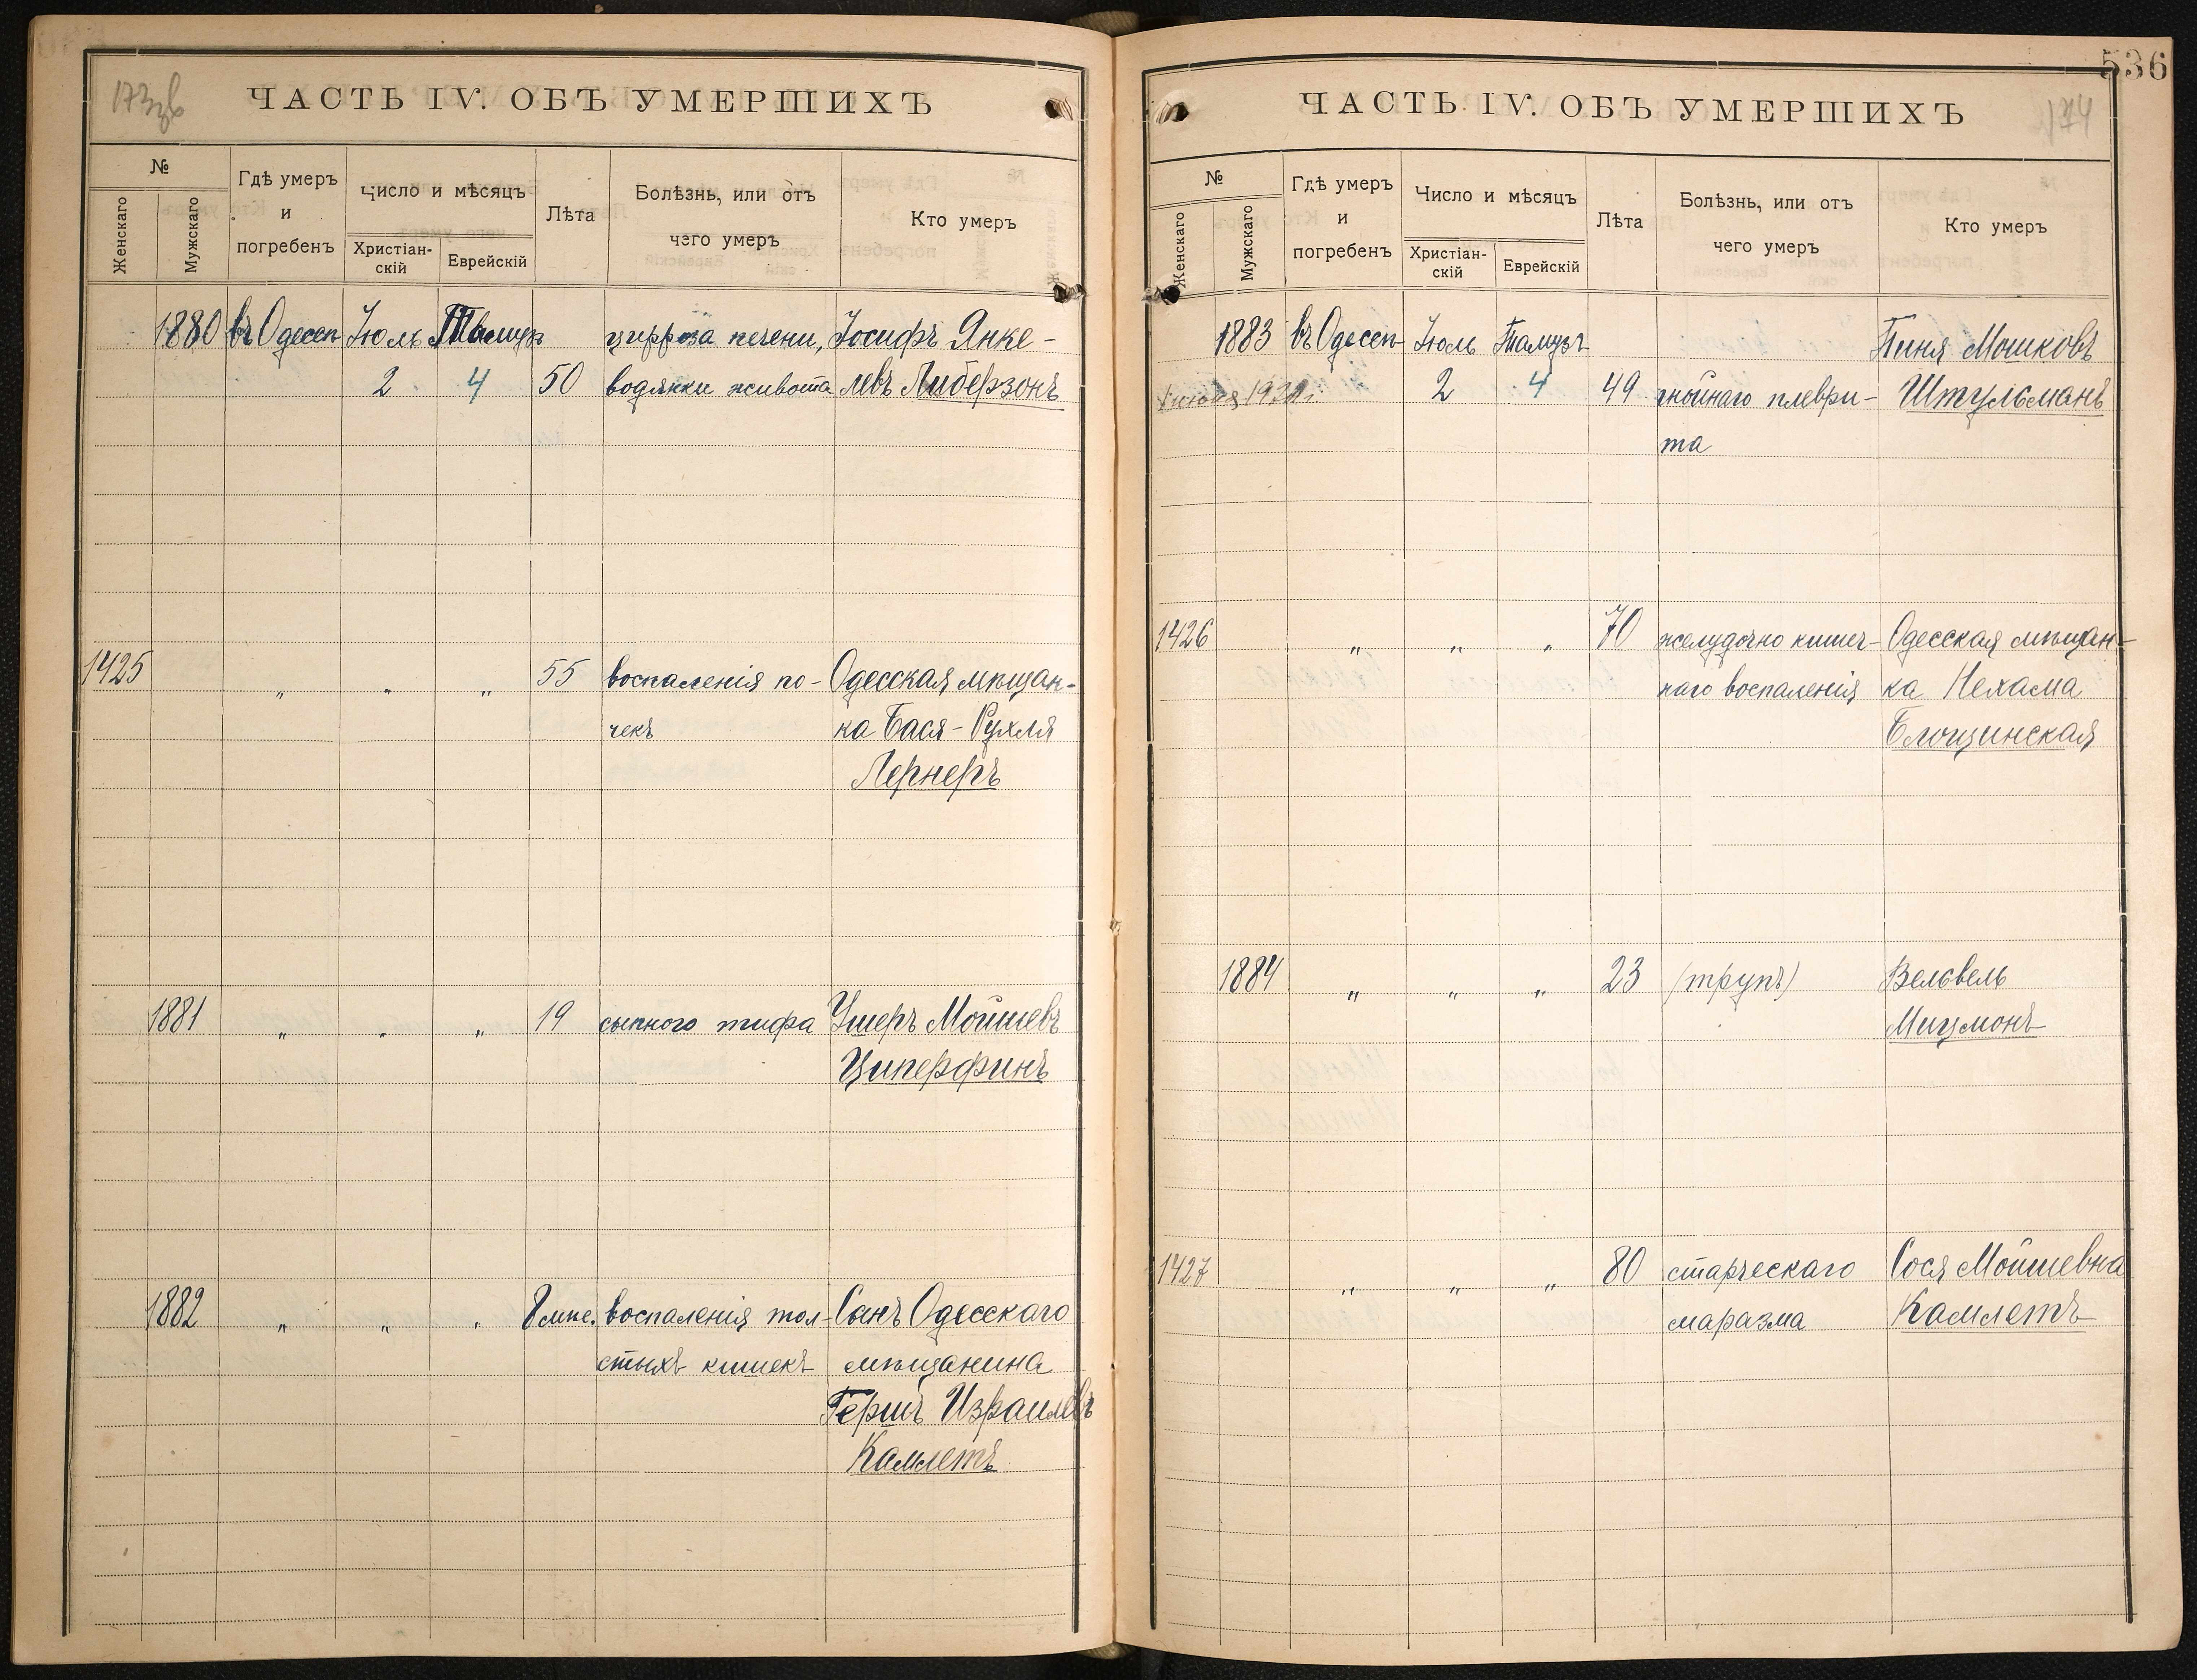 173 об
ЧАСТЬ IV. ОБЪ УМЕРШИХЪ
№
Женскаго
Мужскаго
Гдѣ умеръ
и
погребенъ
Число и мѣсяцъ
Христіан-
скій
Еврейскій
Лѣта
Болѣзнь, или отъ
чего умеръ
Кто умеръ
1880 въ Одессѣ Іюль Тамузъ цирроза печени, Іосифъ Янке-
2 4 50 водянки живота левъ Либерзонъ
1425 „ „ „ 55 воспаленія по- Одесская мѣщан-
чекъ ка Бася-Рухля
Лернеръ
1881 „ „ „ 19 сыпного тифа Ушеръ Мойшевъ
Циперфинъ
1882 „ „ „ 8 мѣс. воспаленія тол- Сынъ Одесскаго
стыхъ кишекъ мѣщанина
Гершъ Израилевъ
Камлетъ
536
174
ЧАСТЬ IV. ОБЪ УМЕРШИХЪ
№
Женскаго
Мужскаго
Гдѣ умеръ
и
погребенъ
Число и мѣсяцъ
Христіан-
скій
Еврейскій
Лѣта
Болѣзнь, или отъ
чего умеръ
Кто умеръ
1883 въ Одессѣ Іюль Тамузъ Пиня Мошковъ
2 4 49 гнойнаго плеври- Штульманъ
та
1426 „ „ „ 70 желудочно кишеч- Одесская мѣщан-
наго воспаленія ка Нехама
Блощинская
1884 „ „ „ 23 (трупъ) Вельвель
Мицмонъ
1427 „ „ „ 80 старческаго Сося Мойшевна
маразма Камлетъ